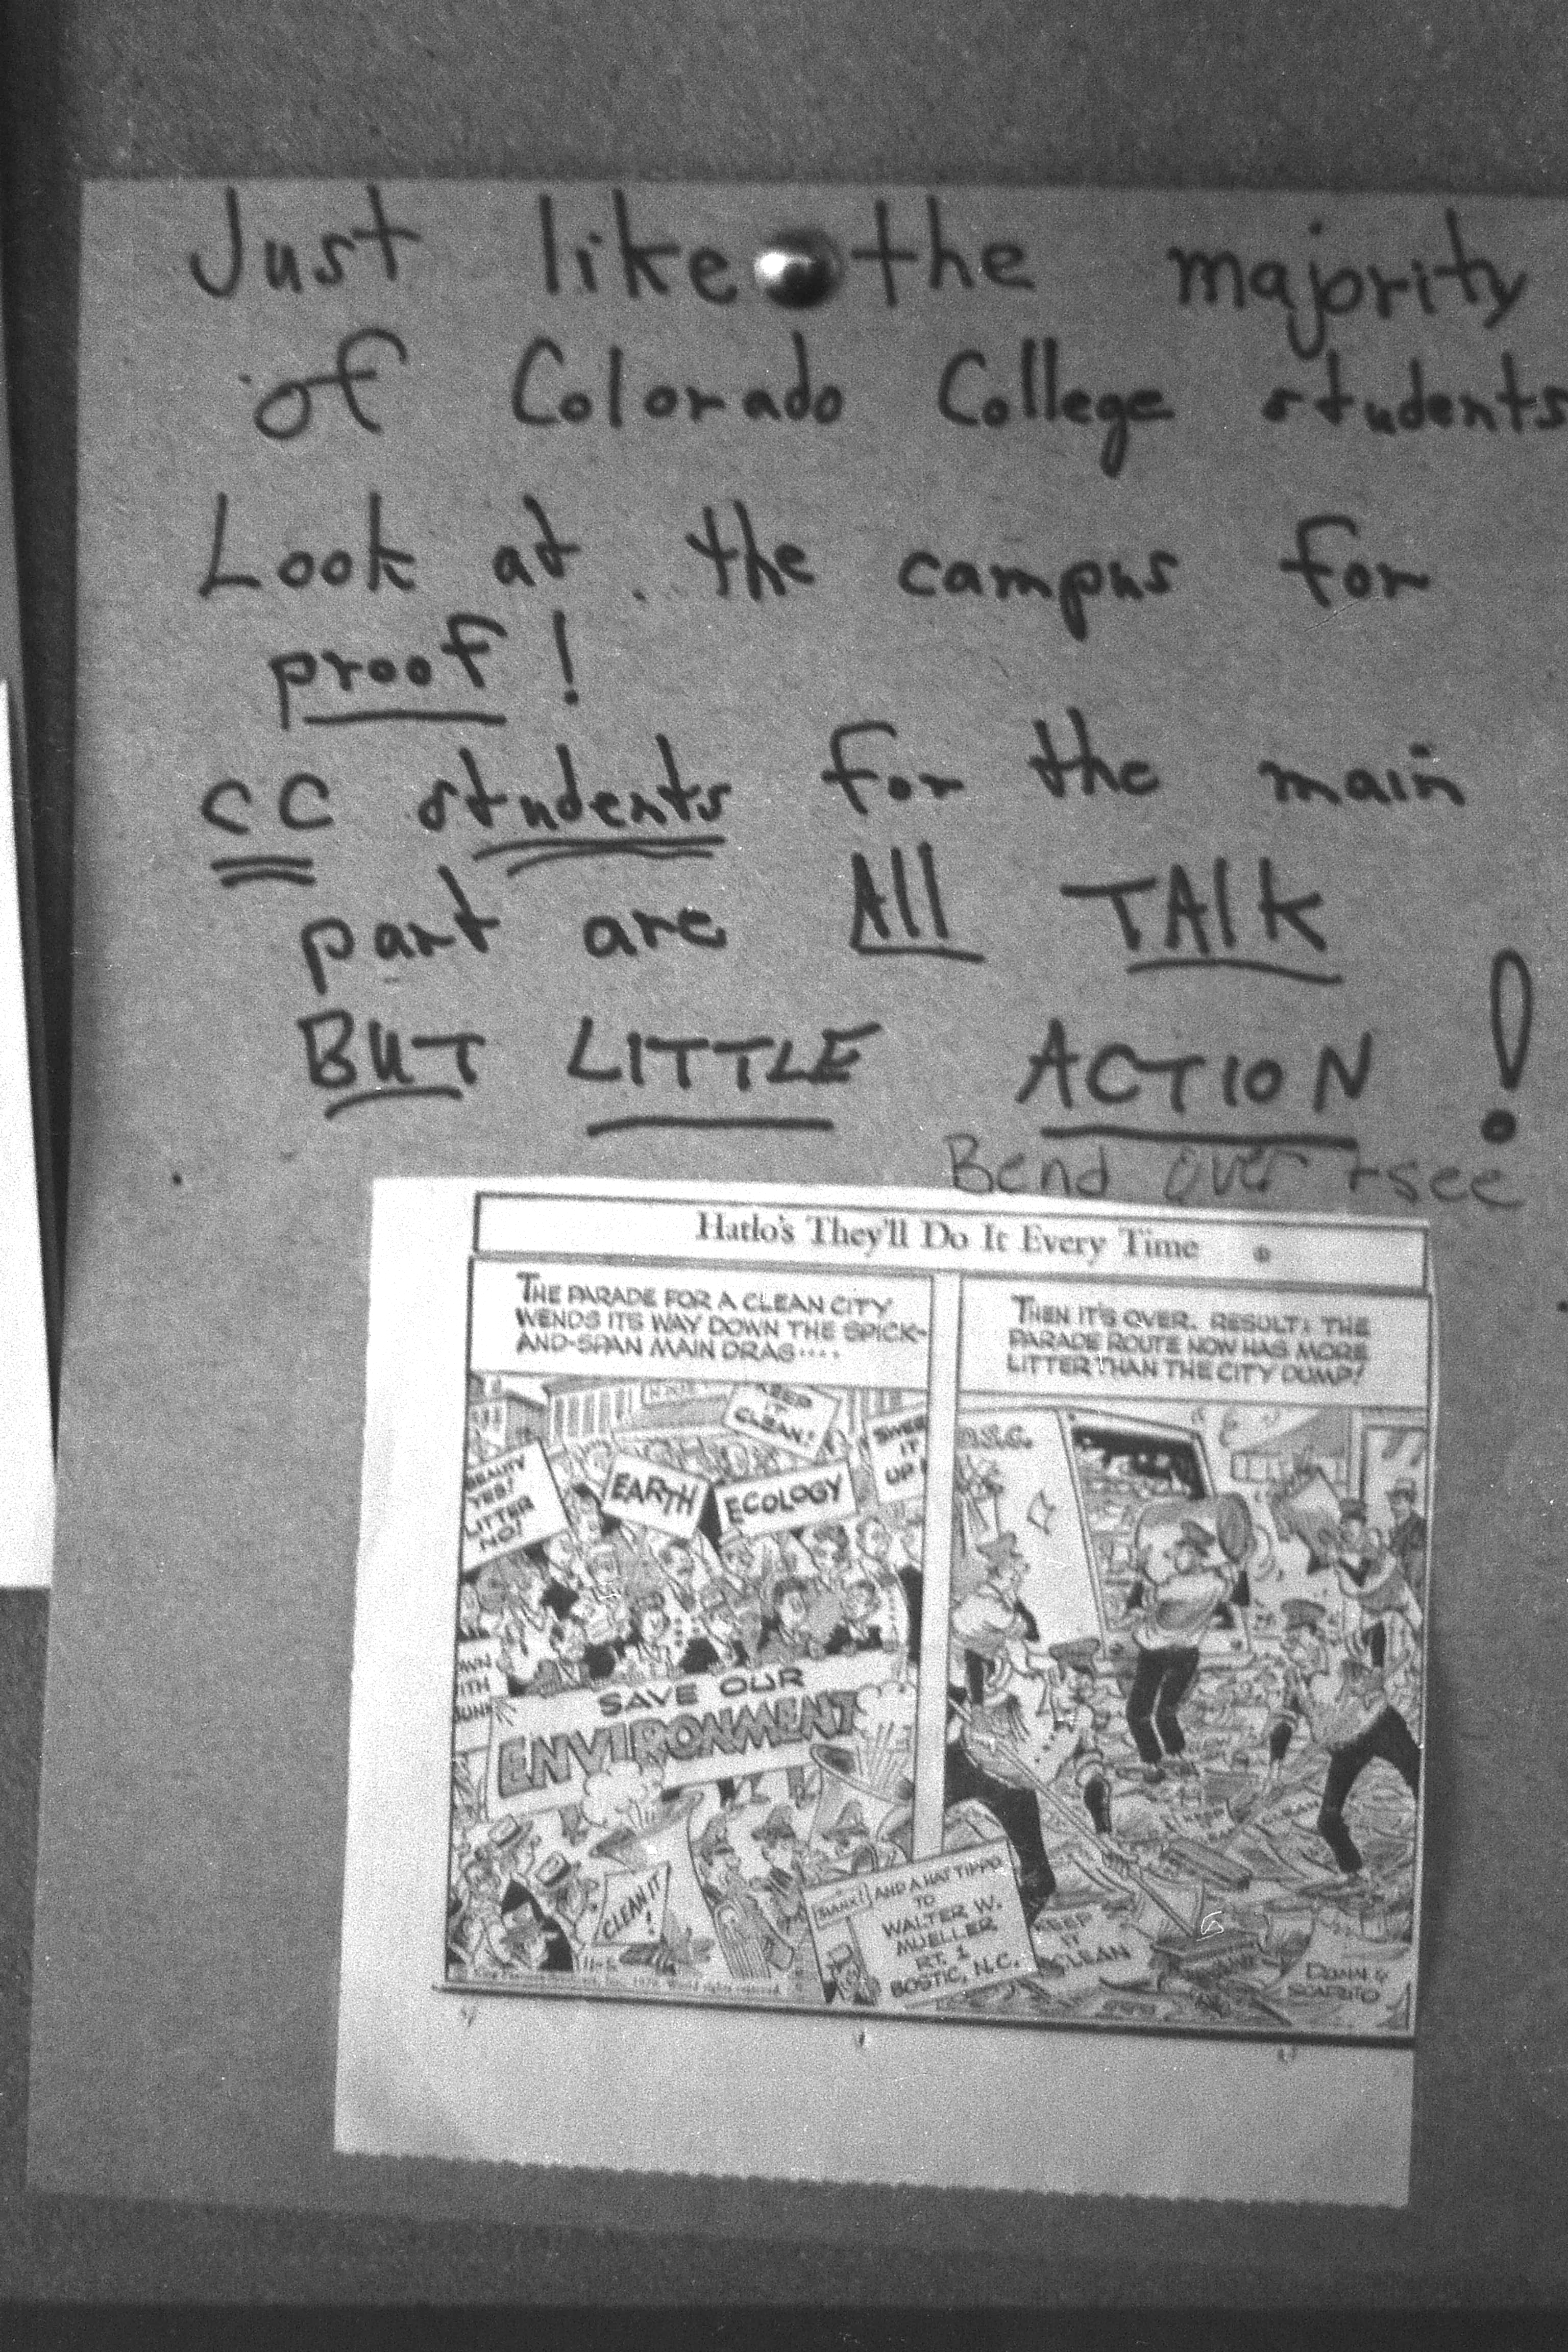 Just like the majority
of Colorado College students
Look at the campus for
proof!
CC students for the main
part are All TALK
BUT LITTLE ACTION!
Bend over + see
Hatlo's They'll Do It Every Time
THE PARADE FOR A CLEAN CITY
WENDS ITS WAY DOWN THE SPICK-
AND-SPAN MAIN DRAG····
KEEP
IT
CLEAN!
SWEEP
IT
UP!
BEAUTY
YES!
LITTER
NO!
EARTH
ECOLOGY
SAVE OUR
ENVIRONMENT
CLEAN IT
!
11-5
THEN IT'S OVER. RESULT: THE
PARADE ROUTE NOW HAS MORE
LITTER THAN THE CITY DUMP!
D.S.C.
THANX! AND A HAT TIP TO
TO
WALTER W.
MUELLER
RT. 1
BOSTIC, N.C.
KEEP
IT
CLEAN
DUNN &
SCADUTO